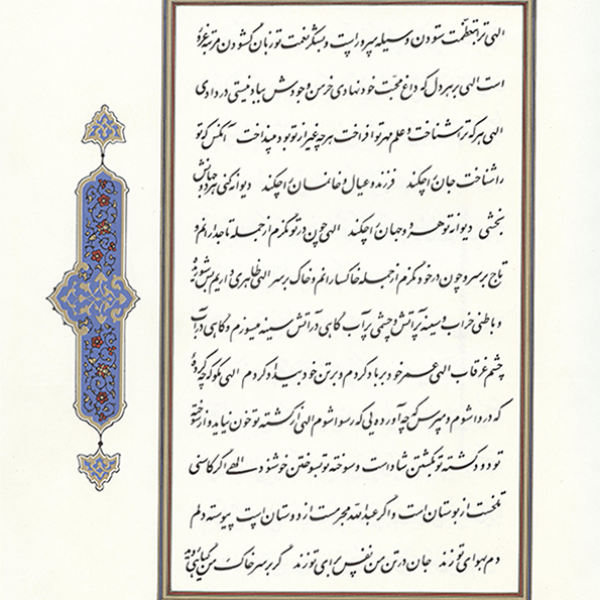 الهی ترا بعظمت ستودن وسیله سرور است و بشکر نعمت تو زبان گشودن مرتبه غرور
است الهی بر هر دل که داغ محبت خود نهادی خرمن وجودش بباد نیستی در دادی
الهی هر که ترا شناخت و علم مهر تو افراخت هر چه غیر از تو بود بینداخت آنکس که تو
را شناخت جان را چکند فرزند و عیال و خانمان را چکند دیوانه کنی هر دو جهانش
بخشی دیوانه تو هر دو جهان را چکند الهی چون در تو نگرم از جمله تاجدارانم و
تاج بر سر و چون در خود نگرم از جمله خاکسارانم و خاک بر سر الهی ظاهری داریم بس شوریده
و باطنی خراب و سینه پر آتش و چشمی پر آب گاهی در آتش سینه میسوزم و گاهی در آب
چشم غرقاب الهی عمر خود بر باد کردم و بر تن خود بیداد کردم الهی مگو که چه کرده
که در وا شوم و مپرس که چه آورده یی که رسوا شوم الهی از کشته تو خون نیاید و از سوخته
تو دود کشته تو بکشتن شاد است و سوخته تو بسوختن خوشنود الهی اگر کاسنی
تلخست از بوستان است و اگر عبدالله مجرمست از دوستان است پیوسته دلم
دم بهوای تو زند جان در تن من نفس برای تو زند گر بر سر خاک من گیاهی روید